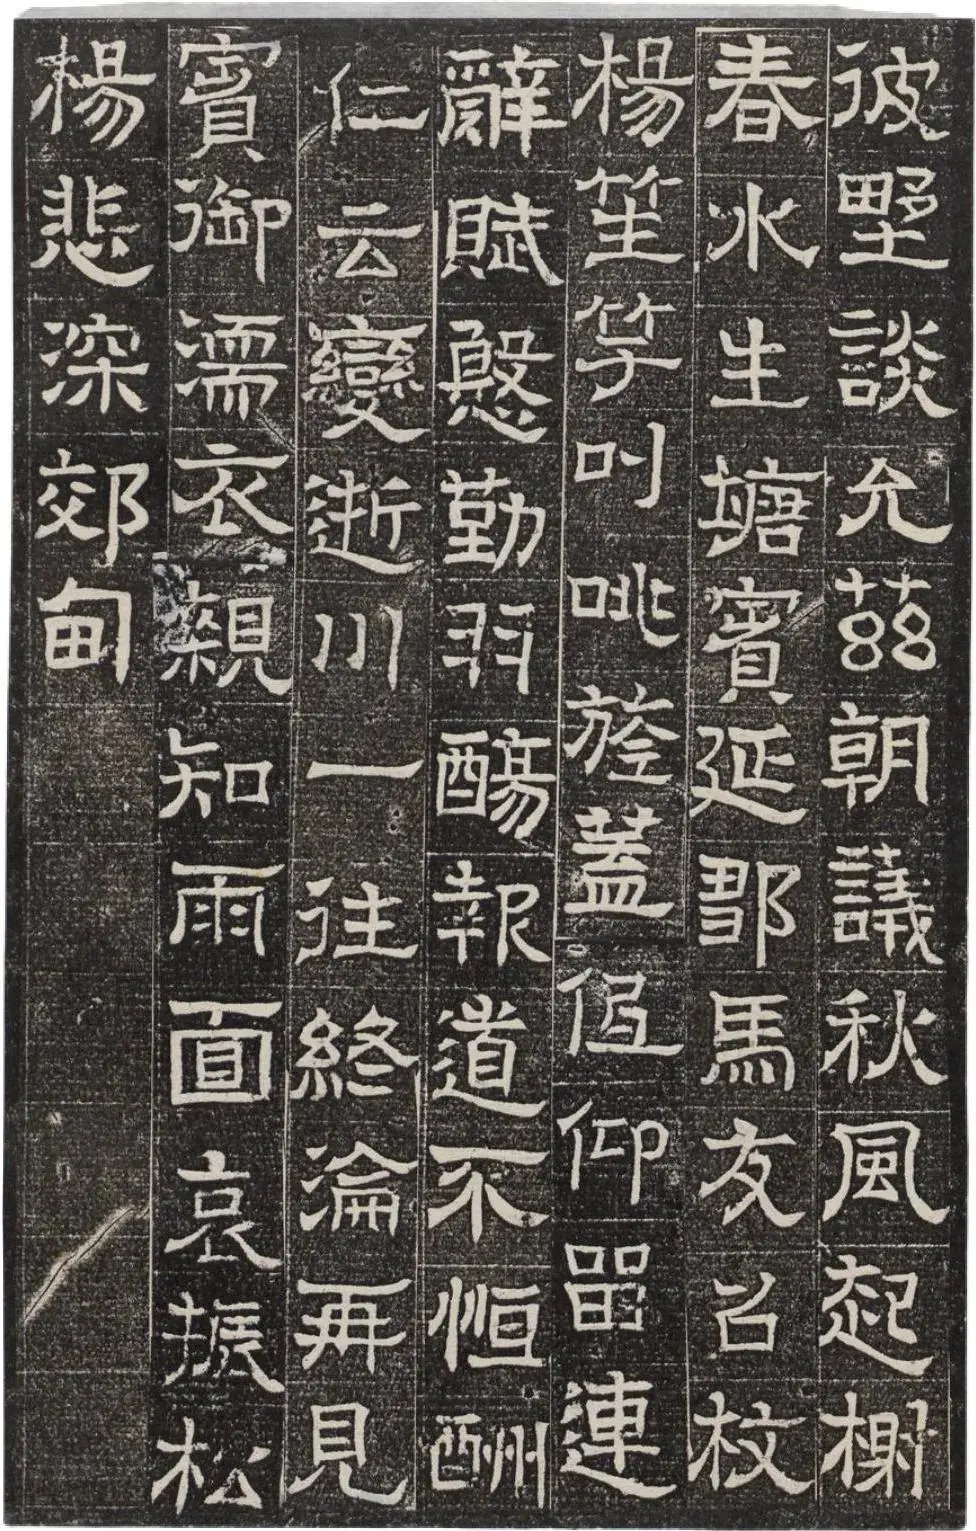 彼野談允茲朝議秋風起榭
春水生塘賓延鄒馬友召枚
楊笙竽叫咷旌蓋低仰連
辭賦慇勤羽觴報道不恒酬
仁云變逝川一往終淪再見
賓御濡衣親知雨面哀振松
楊悲深郊甸